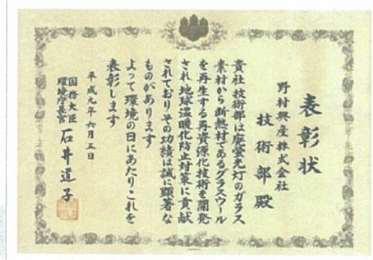 表彰状
野村興産株式会社
技術部殿
貴社技術部は廃蛍光灯のガラス
素材から断熱材であるグラスウール
を再生する再資源化技術を開発
され地球温暖化防止対策に貢献
されておりその功績は誠に顕著な
ものがあります
よって環境の日にあたりこれを
表彰します
平成九年六月五日
国務大臣
環境庁長官
石井道子